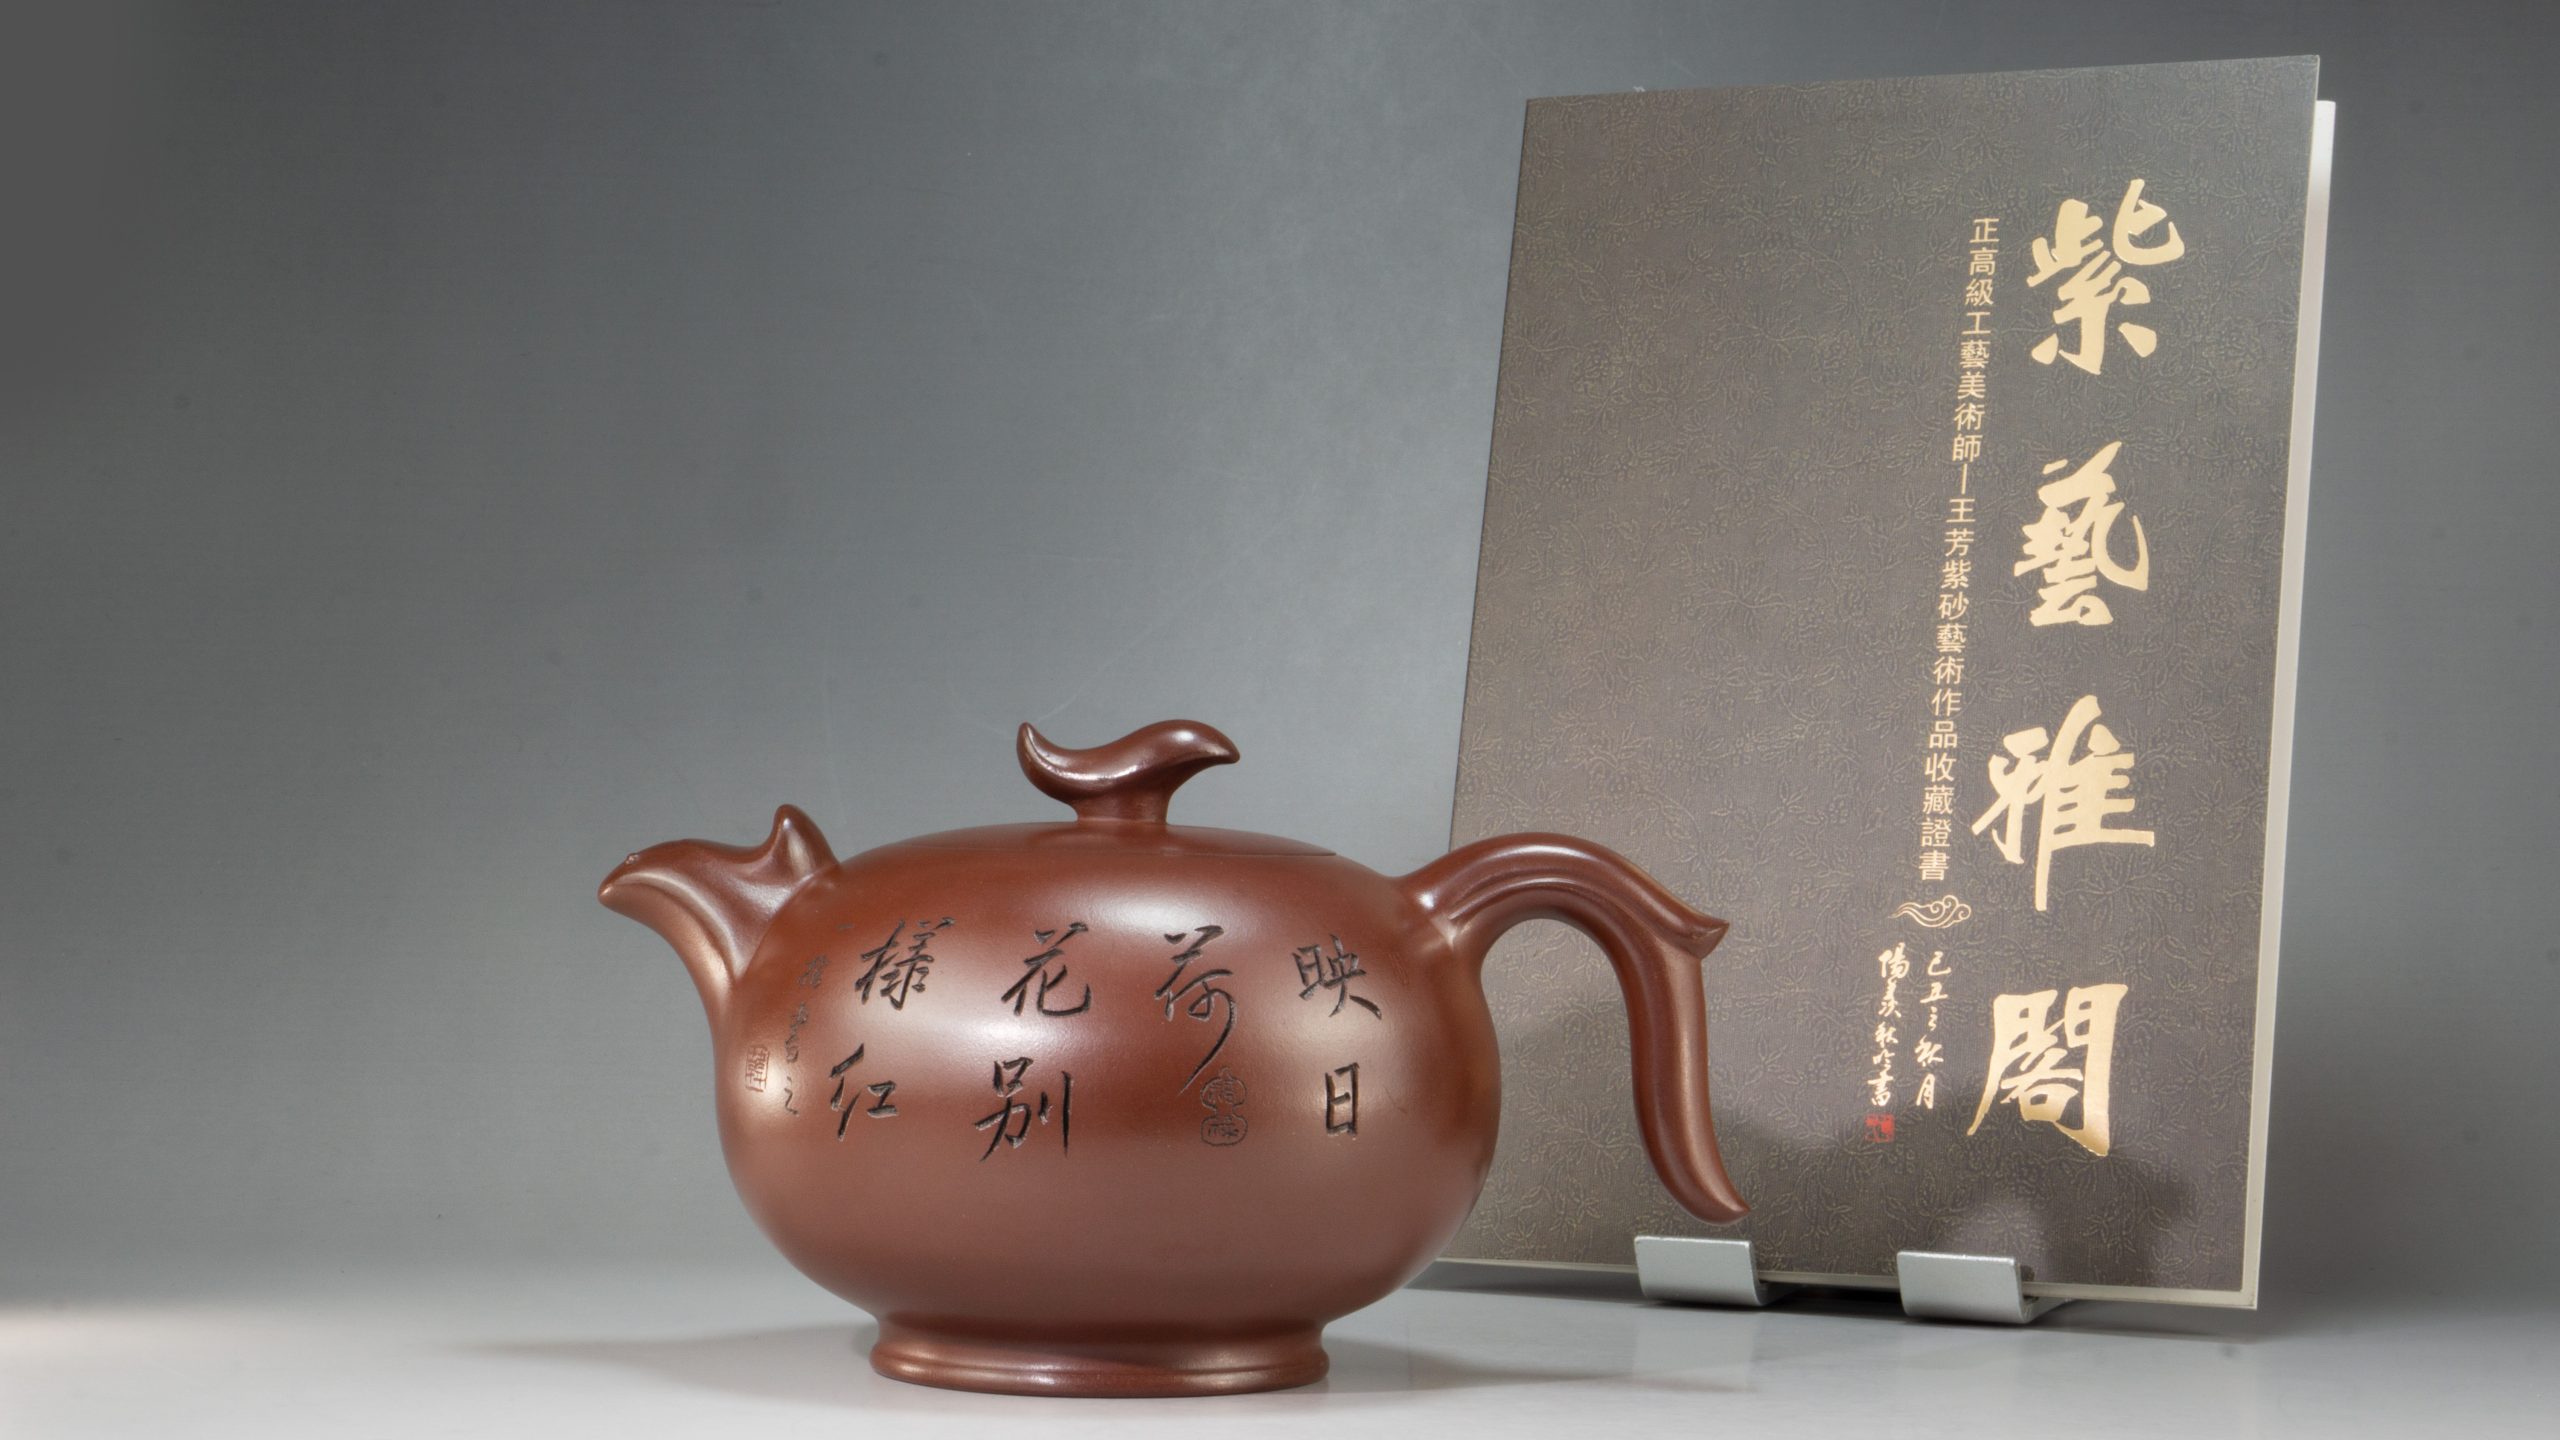 紫藝雅閣
正高級工藝美術師—王芳紫砂藝術作品收藏證書
己丑之秋月
陽羨秋吟書
映日
荷
花别
樣红